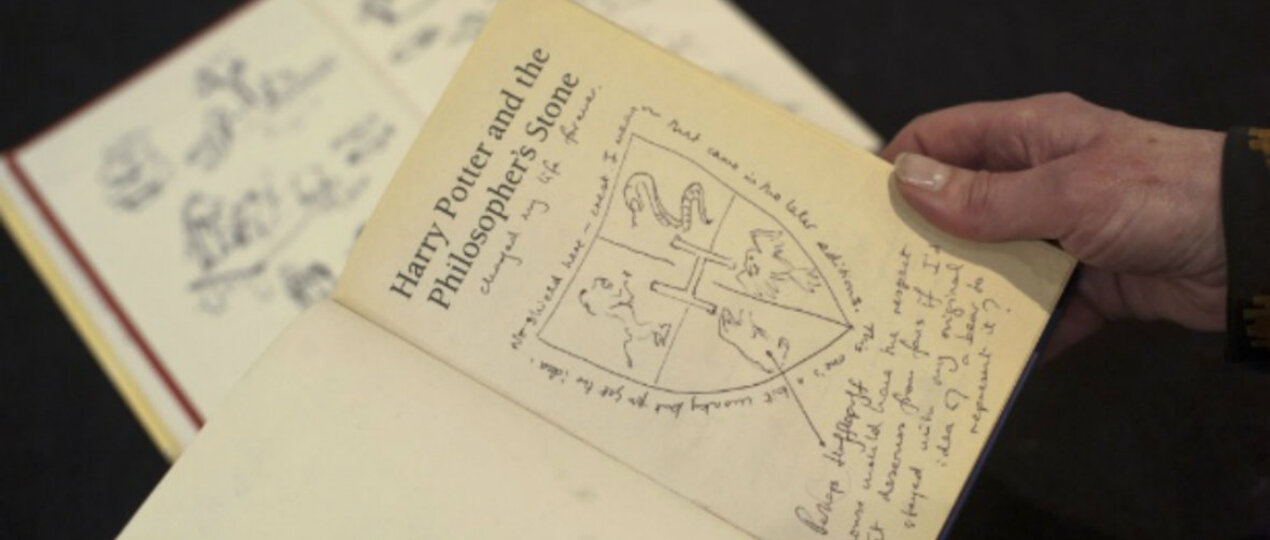 Harry Potter and the
Philosopher's Stone
changed my life forever.
No shield here – crest I mean –
that came in the later editions.
This is
a bit wonky but you get the idea!
Perhaps Hufflepuff
house would have the respect
it deserves from fans if I'd
stayed with my original
idea of a bear to
represent it?